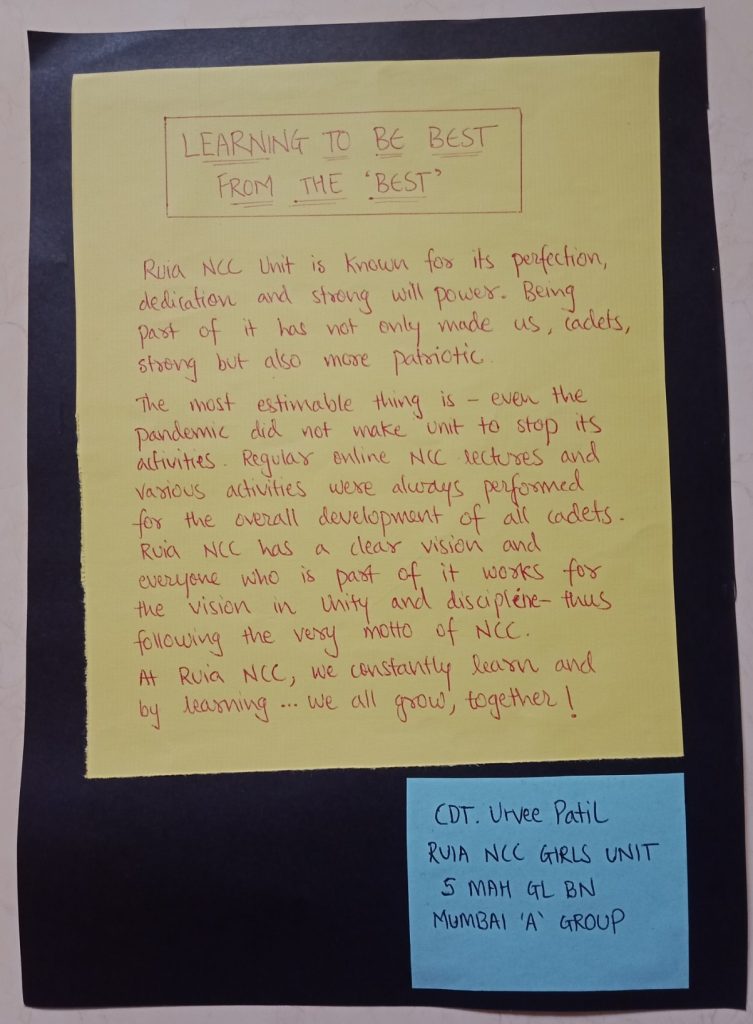 LEARNING TO BE BEST
FROM THE 'BEST'
Ruia NCC Unit is known for its perfection,
dedication and strong will power. Being
part of it has not only made us, cadets,
strong but also more patriotic.
The most estimable thing is – even the
pandemic did not make unit to stop its
activities. Regular online NCC lectures and
various activities were always performed
for the overall development of all cadets.
Ruia NCC has a clear vision and
everyone who is part of it works for
the vision in Unity and discipline – thus
following the very motto of NCC.
At Ruia NCC, we constantly learn and
by learning ... we all grow, together!
CDT. Urvee Patil
RUIA NCC GIRLS UNIT
5 MAH GL BN
MUMBAI 'A' GROUP